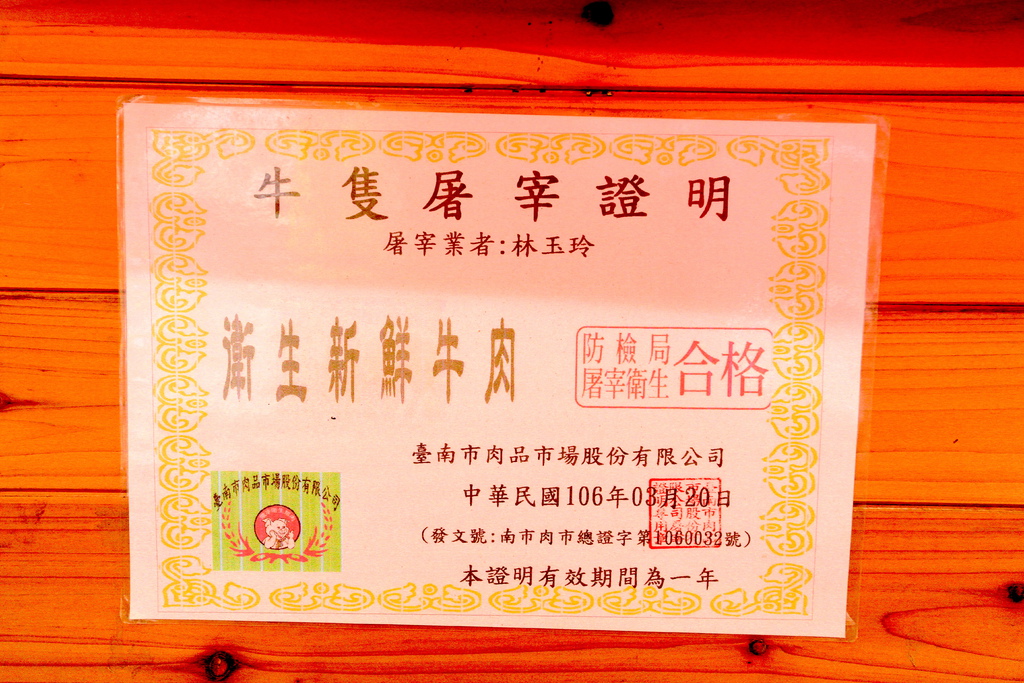 牛隻屠宰證明
屠宰業者:林玉玲
衛生新鮮牛肉
防檢局
屠宰衛生
合格
臺南市肉品市場股份有限公司
中華民國106年03月20日
(發文號:南市肉市總證字第1060032號)
本證明有效期間為一年
臺南市肉品市場股份有限公司